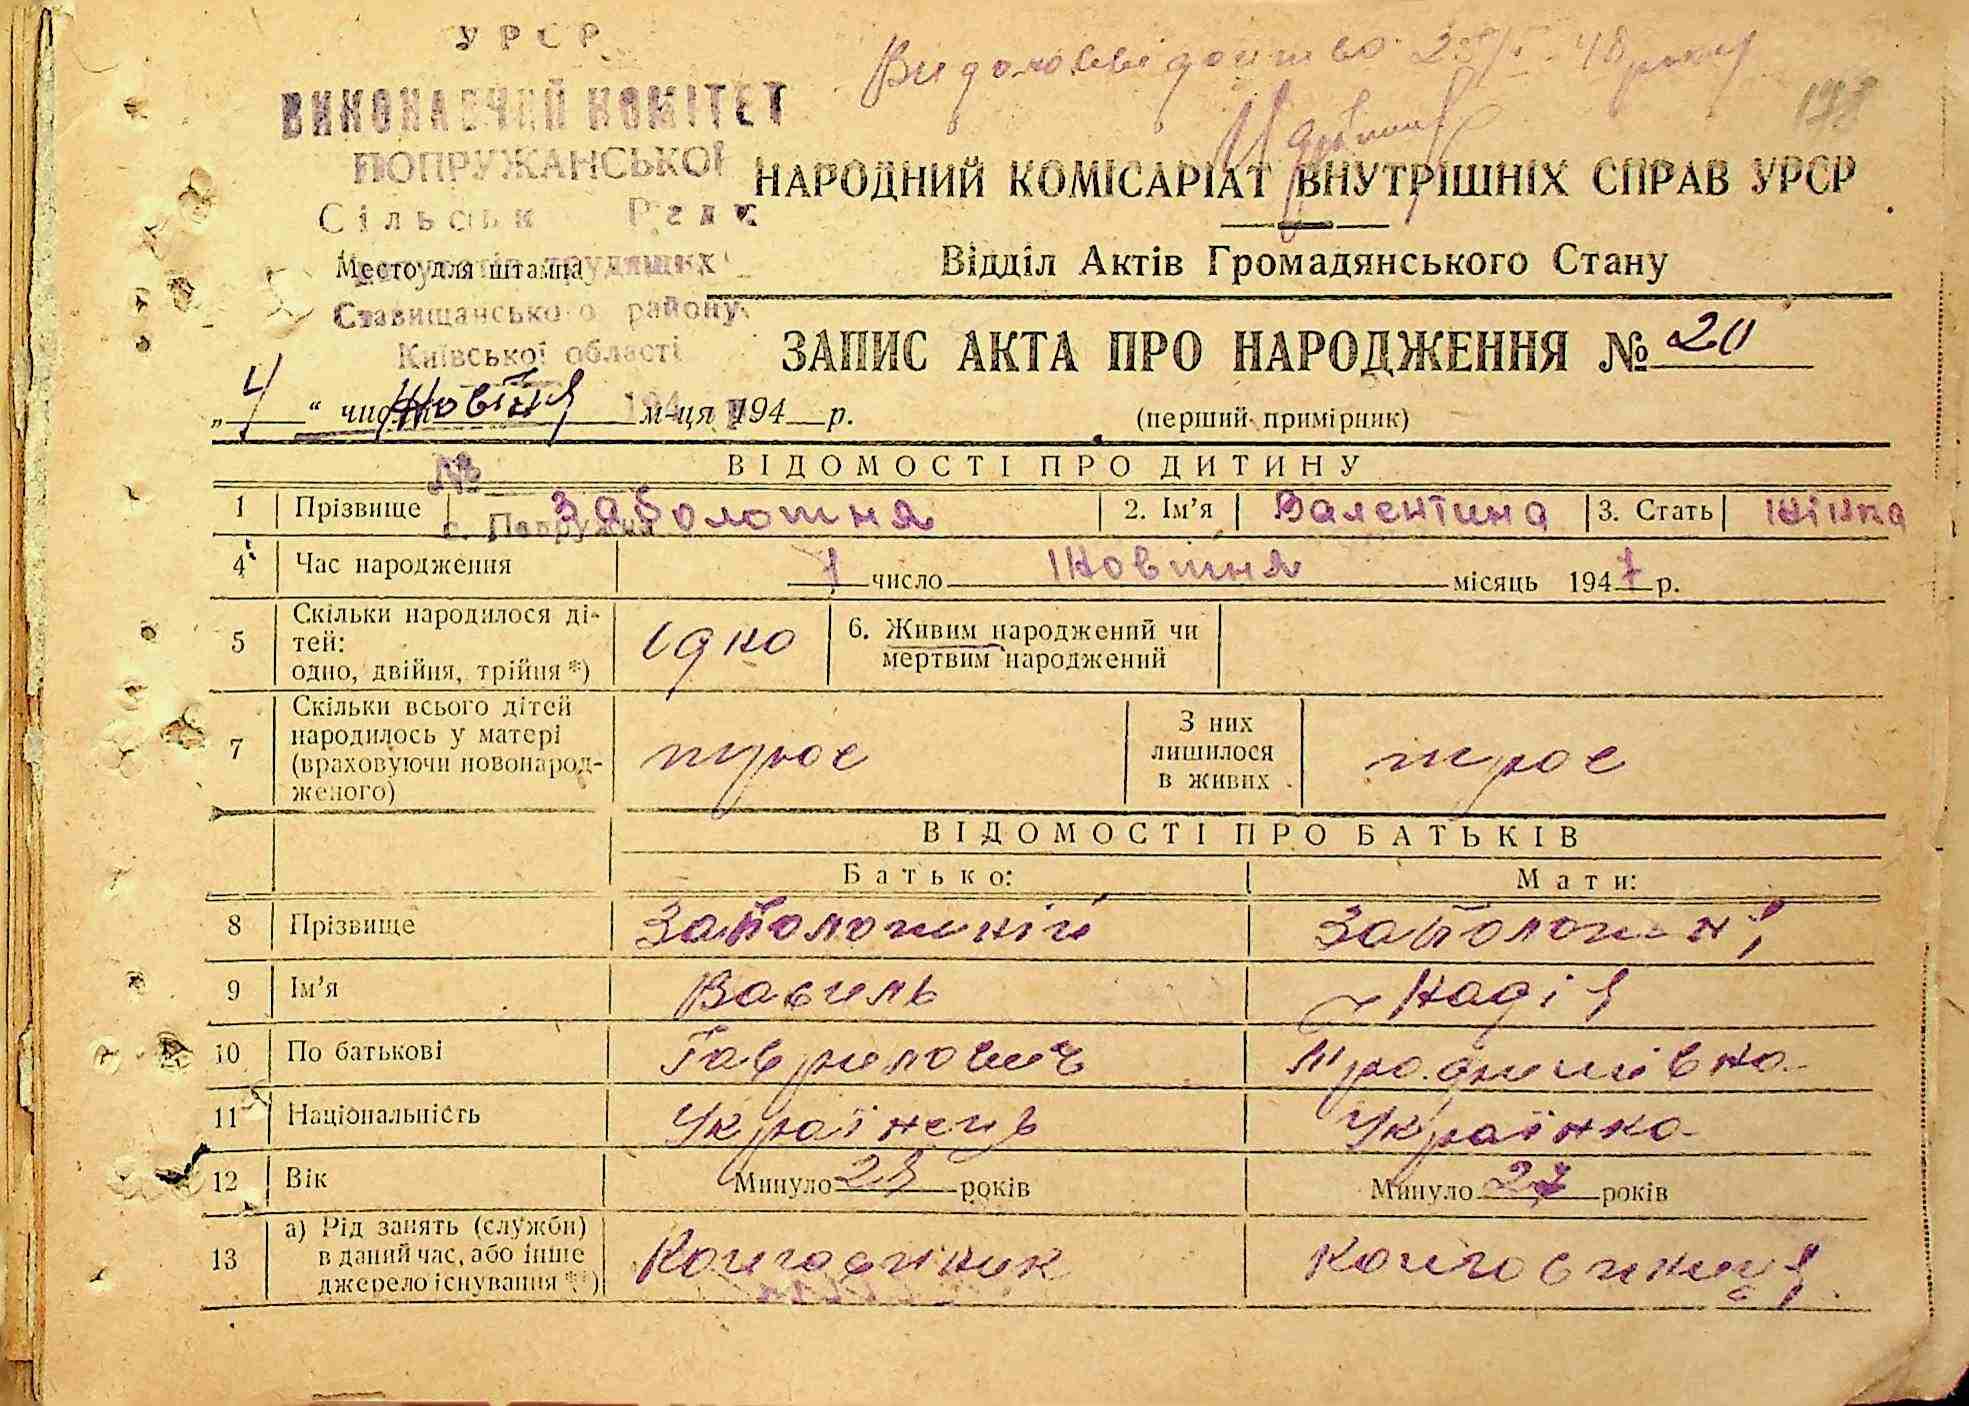 УРСР
ВИКОНАВЧИЙ КОМІТЕТ
ПОПРУЖАНСЬКОЇ
Сільськ Рада
депутатів трудящих
Ставищанського району
Київської області
194
№
с. Попружна
Видоно свідоцтво 25/І-48 року
198
НАРОДНИЙ КОМІСАРІАТ ВНУТРІШНІХ СПРАВ УРСР
Место для штампа
Відділ Актів Громадянського Стану
ЗАПИС АКТА ПРО НАРОДЖЕННЯ № 20
„ 4 “ число Жовтня м-ця 194 р.
(перший примірник)
ВІДОМОСТІ ПРО ДИТИНУ
1 Прізвище Заболотня 2. Ім’я Валентина 3. Стать жінка
4 Час народження 1 число Жовтня місяць 1947 р.
5 Скільки народилося ді-
тей:
одно, двійня, трійня *) Одно 6. Живим народжений чи
мертвим народжений
7 Скільки всього дітей
народилось у матері
(враховуючи новонарод-
женого) троє З них
лишилося
в живих троє
ВІДОМОСТІ ПРО БАТЬКІВ
Батько: Мати:
8 Прізвище Заболотній Заболотня
9 Ім’я Василь Надія
10 По батькові Гаврилович Трофимівна
11 Національність Українець Українка
12 Вік Минуло років Минуло 27 років
13 а) Рід занять (служби)
в даний час, або інше
джерело існування **) Колгоспник Колгоспниця